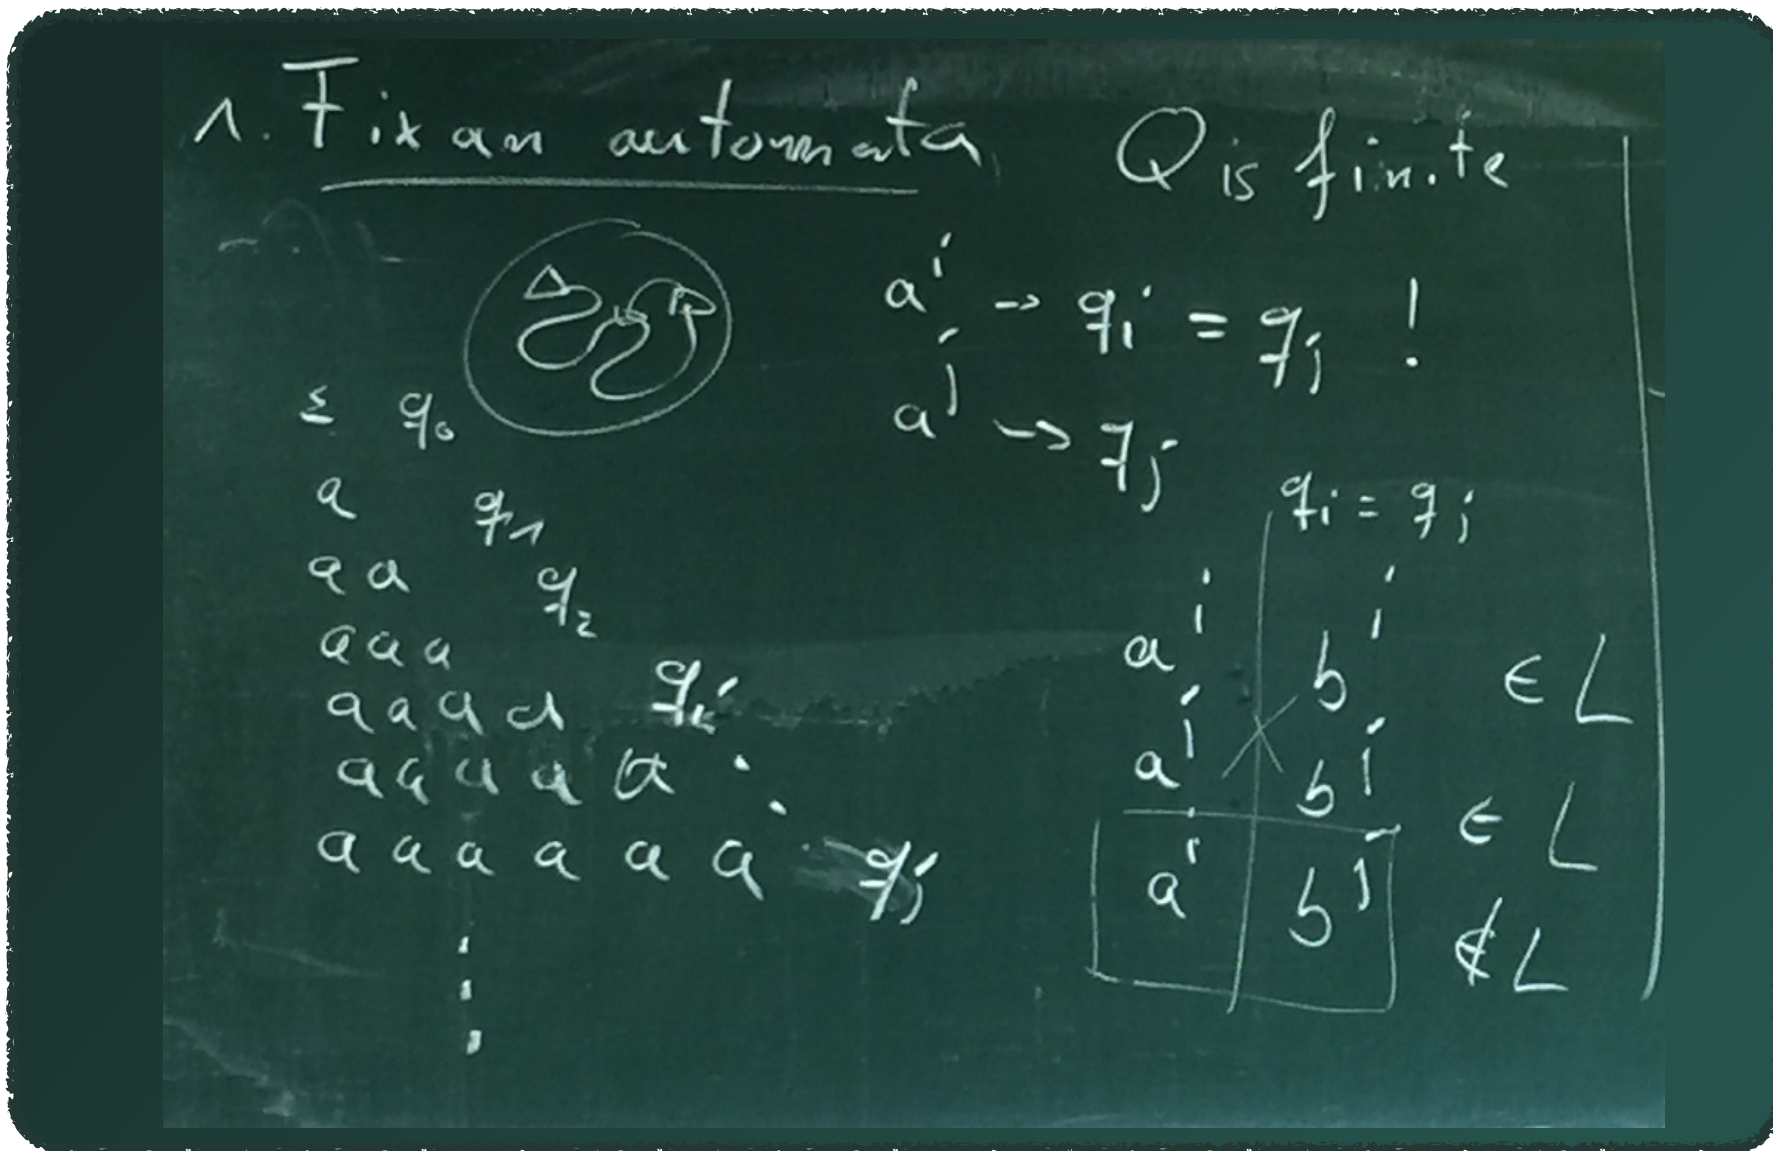 1. Fix an automata Q is finite
a^i → q_i = q_j !
a^j → q_j
ε q_0
a q_1
aa q_2
aaa
aaaa q_i
aaaaa
aaaaaa q_j
q_i = q_j
a^i b^i ∈ L
a^j b^j ∈ L
a^i b^j ∉ L